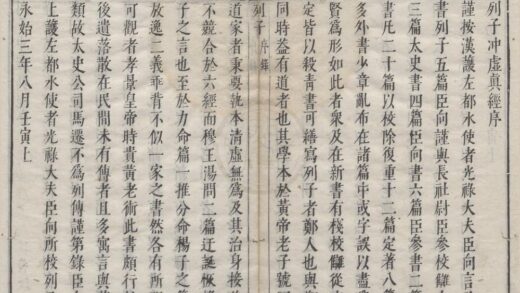 列子冲虛真經序
謹按漢護左都水使者光祿大夫臣向言
書列子五篇臣向謹與長社尉臣參校讎
三篇太史書四篇臣向書六篇臣參書二
書凡二十篇以校除復重十二篇定著八篇
多外書少章亂布在諸篇中或字誤以盡
賢爲形如此者衆及在新書有棧校讎從
定皆以殺靑書可繕寫列子者鄭人也與
同時葢有道者也其學本於黃帝老子號
列子 序錄
道家者秉要執本清虛無爲及其治身接
不競合於六經而穆王湯問二篇迂誕恢
子之言也至於力命篇一推分命楊子之
放逸二義乖背不似一家之書然各有所
可觀者孝景皇帝時貴黃老術此書頗行
後遺落散在民間未有傳者且多寓言與
類故太史公司馬遷不爲列傳謹第錄臣
上護左都水使者光祿大夫臣向所校列
永始三年八月壬寅上